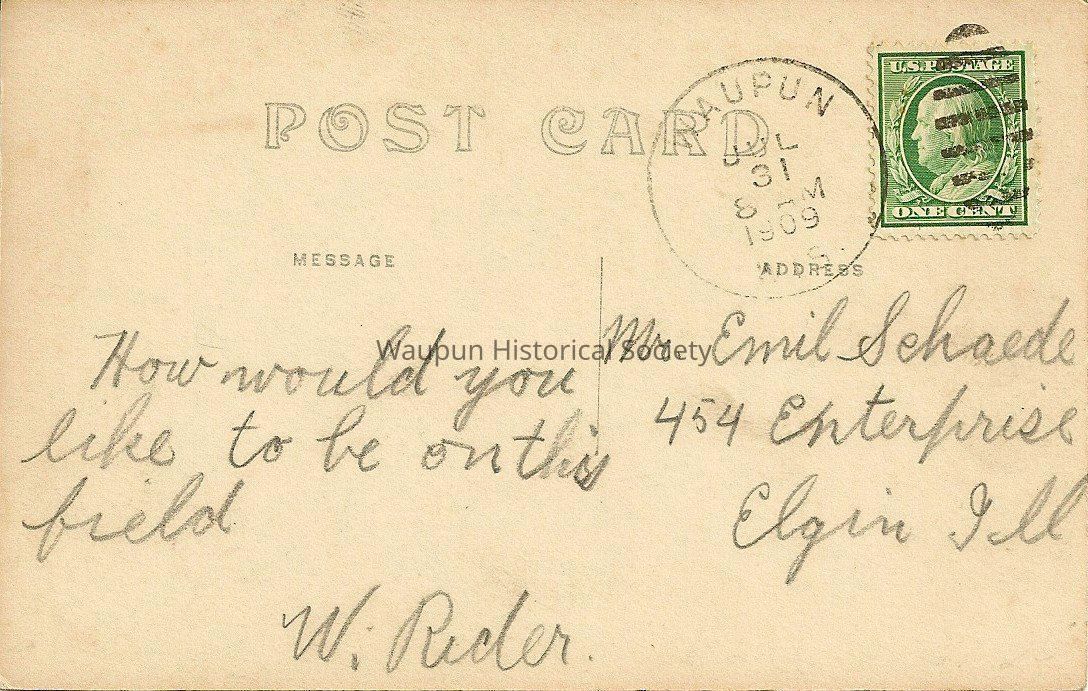 POST CARD
WAUPUN
JUL
31
8 PM
1909
WIS.
U.S. POSTAGE
ONE CENT
MESSAGE
ADDRESS
How would you
like to be on this
field
W. Rider.
Mr. Emil Schaede
454 Enterprise
Elgin Ill
Waupun Historical Society